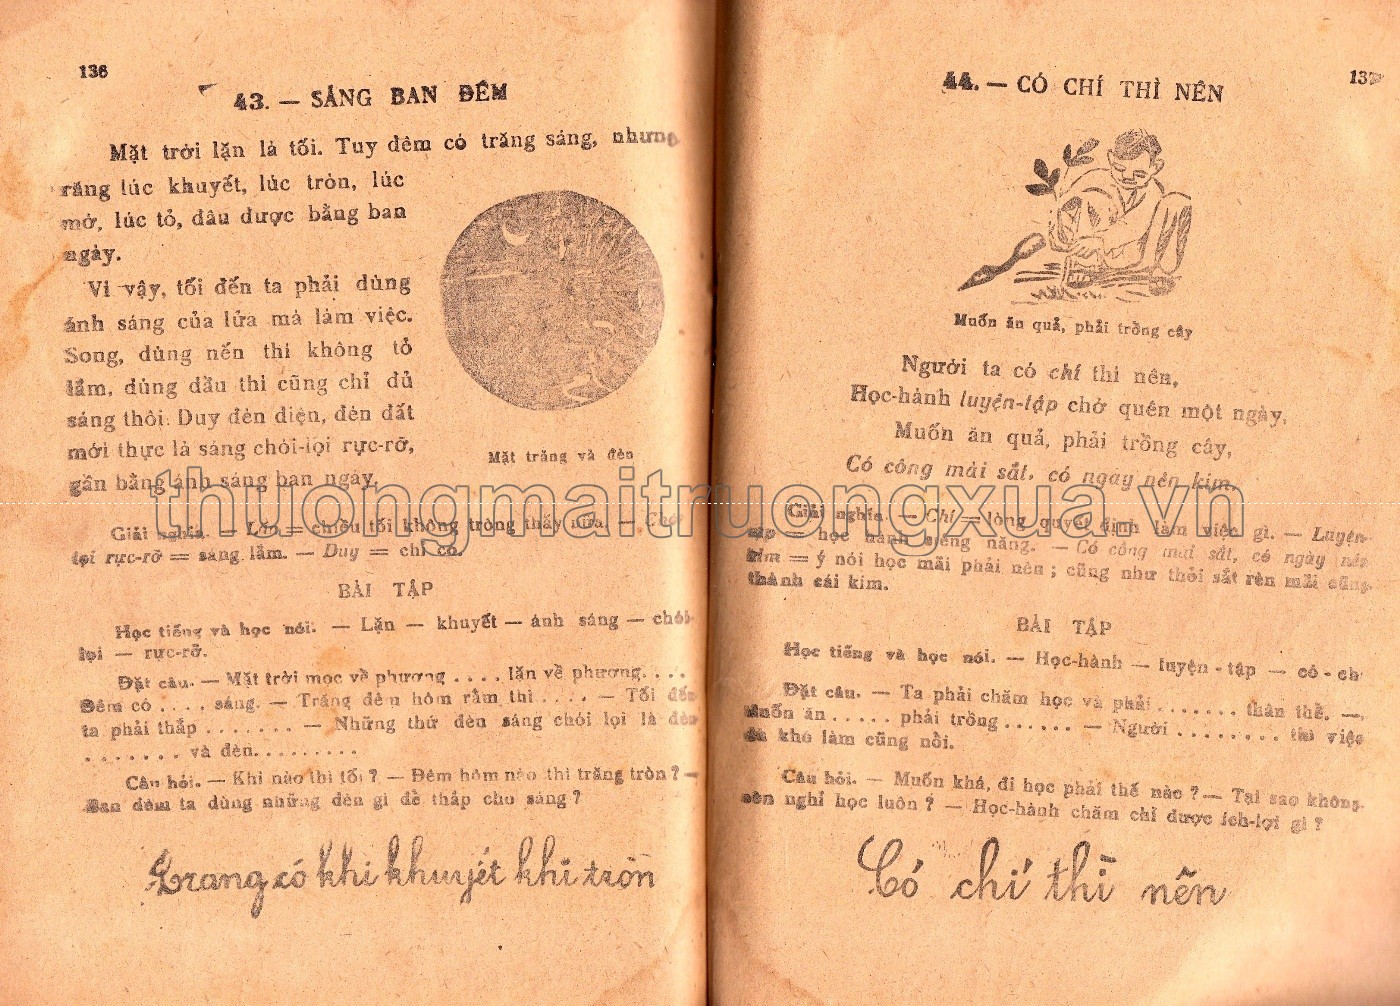 136
43. — SÁNG BAN ĐÊM
Mặt trời lặn là tối. Tuy đêm có trăng sáng, nhưng
răng lúc khuyết, lúc tròn, lúc
mờ, lúc tỏ, đâu được bằng ban
ngày.
Vì vậy, tối đến ta phải dùng
ánh sáng của lửa mà làm việc.
Song, dùng nến thì không tỏ
lắm, dùng dầu thì cũng chỉ đủ
sáng thôi. Duy đèn điện, đèn đất
mới thực là sáng chói-lọi rực-rỡ,
gần bằng ánh sáng ban ngày.
Mặt trăng và đèn
Giải nghĩa. — Lặn = chiều tối không trông thấy nữa. — Chói
lọi rực-rỡ = sáng lắm. — Duy = chỉ có.
BÀI TẬP
Học tiếng và học nói. — Lặn — khuyết — ánh sáng — chói-
lọi — rực-rỡ.
Đặt câu. — Mặt trời mọc về phương .... lặn về phương....
Đêm có .... sáng. — Trăng đêm hôm rằm thì .... — Tối đến
ta phải thắp ....... — Những thứ đèn sáng chói lọi là đèn
....... và đèn.........
Câu hỏi. — Khi nào thì tối ? — Đêm hôm nào thì trăng tròn ? —
Ban đêm ta dùng những đèn gì để thắp cho sáng ?
Trăng có khi khuyết khi tròn
44. — CÓ CHÍ THÌ NÊN
137
Muốn ăn quả, phải trồng cây
Người ta có chí thì nên,
Học-hành luyện-tập chớ quên một ngày,
Muốn ăn quả, phải trồng cây,
Có công mài sắt, có ngày nên kim.
Giải nghĩa. — Chí = lòng quyết định làm việc gì. — Luyện-
tập = học hành siêng năng. — Có công mài sắt, có ngày nên
kim = ý nói học mãi phải nên ; cũng như thỏi sắt rèn mãi cũng
thành cái kim.
BÀI TẬP
Học tiếng và học nói. — Học-hành — luyện-tập — có-chí
Đặt câu. — Ta phải chăm học và phải ....... thân thể. —
Muốn ăn ..... phải trồng ...... — Người ........ thì việc
dù khó làm cũng nổi.
Câu hỏi. — Muốn khá, đi học phải thế nào ? — Tại sao không
nên nghỉ học luôn ? — Học-hành chăm chỉ được ích-lợi gì ?
Có chí thì nên
thuongmaitruongxua.vn